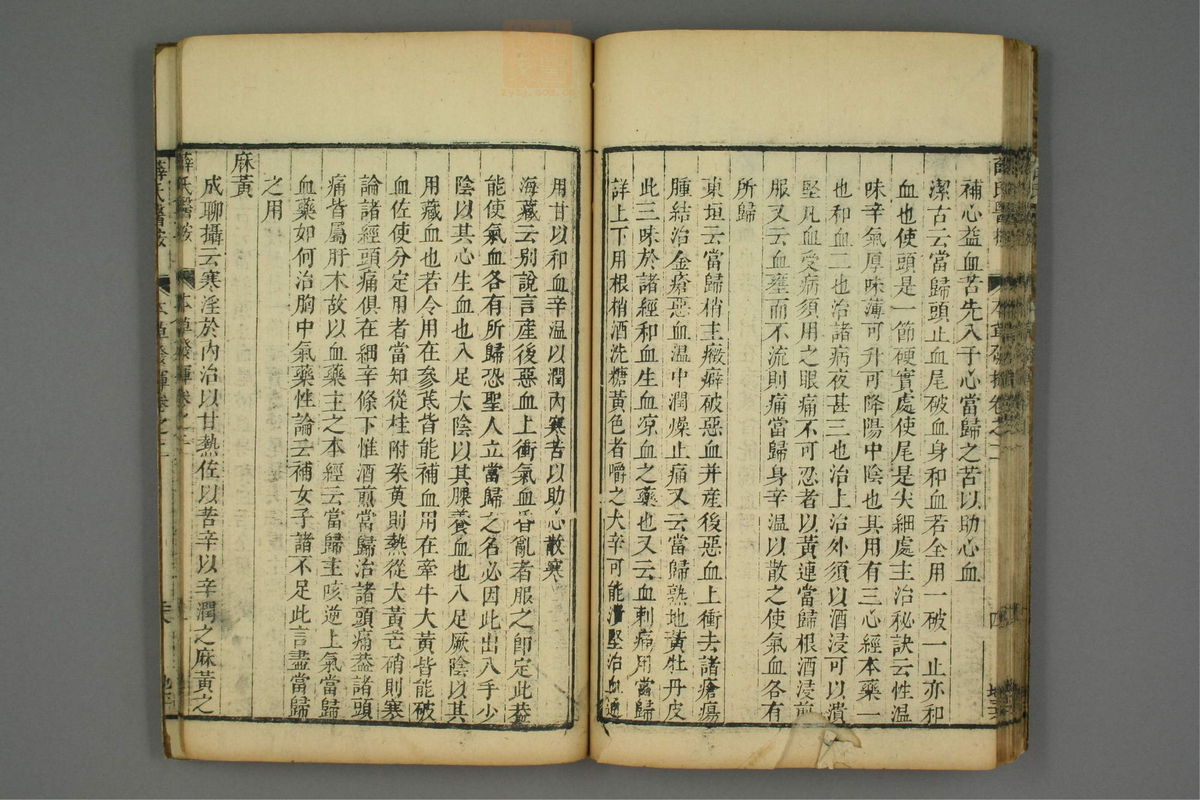 補心益血苦先入于心當歸之苦以助心血
潔古云當歸頭止血尾破血身和血若全用一破一止亦和
血也使頭是一節硬實處使尾是尖細處主治秘訣云性溫
味辛氣厚味薄可升可降陽中陰也其用有三心經本藥一
也和血二也治諸病夜甚三也治上治外須以酒浸可以潰
堅凡血受病須用之眼痛不可忍者以黃連當歸根酒浸煎
服又云血壅而不流則痛當歸身辛溫以散之使氣血各有
所歸
東垣云當歸梢主癥癖破惡血并產後惡血上衝去諸瘡瘍
腫結治金瘡惡血溫中潤燥止痛又云當歸熟地黃牡丹皮
此三味於諸經和血生血涼血之藥也又云血刺痛用當歸
詳上下用根梢酒洗糖黃色者嚼之大辛可能潰堅治血通
用甘以和血辛溫以潤內寒苦以助心散寒
海藏云別說言產後惡血上衝氣血昏亂者服之即定此葢
能使氣血各有所歸恐聖人立當歸之名必因此出入手少
陰以其心生血也入足太陰以其脾養血也入足厥陰以其
用藏血也若令用在參芪皆能補血用在牽牛大黃皆能破
血佐使分定用者當知從桂附茱萸則熱從大黃芒硝則寒
論諸經頭痛俱在細辛條下惟酒煎當歸治諸頭痛葢諸頭
痛皆屬肝木故以血藥主之本經云當歸主咳逆上氣當歸
血藥如何治胸中氣藥性論云補女子諸不足此言盡當歸
之用
麻黃
成聊攝云寒淫於內治以甘熱佐以苦辛以辛潤之麻黃之
薛氏醫按
本草發揮卷之二